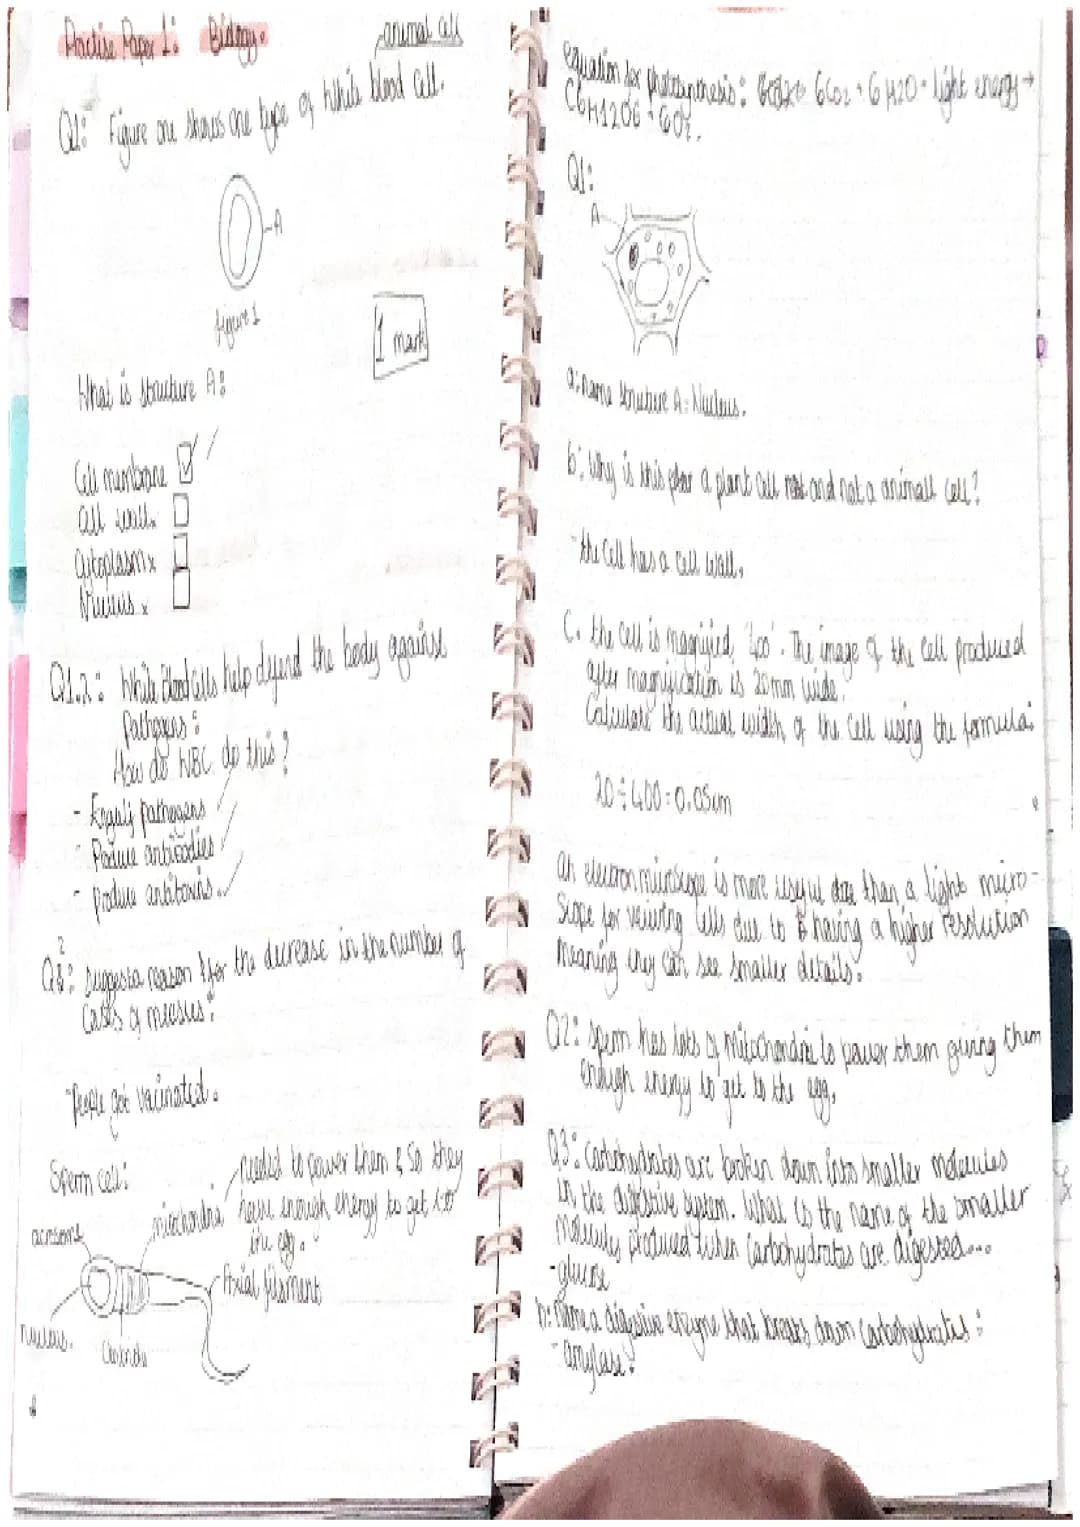 Practise Paper 1: Biology.
animal cell
Q1: Figure one shows one type of white blood cell.
A
figure 1
1 mark
What is structure A:
Cell membrane
Cell wall x
Cytoplasm x
Nucleus x
Q1.2: White Blood Cells help defend the body against
Pathogens:
How do WBC do this?
- Engulf pathogens
- Produce antibodies
- produce antitoxins.
2
Q: Suggest a reason for the decrease in the number of
Cases of measles:
- People got vaccinated.
Sperm cell:
needed to power them & so they
have enough energy to get to
the egg.
mitochondria
acrosome
Axial filament
nucleus.
Centriole
equation for photosynthesis: 6CO2 + 6H2O + light energy →
C6H12O6 + 6O2.
Q1:
A
a: name structure A: Nucleus.
b: Why is this a plant cell and not a animall cell?
- the cell has a cell wall.
C. the cell is magnified, 400. The image of the cell produced
after magnification is 20mm wide.
Calculate the actual width of the cell using the formula:
20 ÷ 400 = 0.05
an electron microscope is more useful than a light micro-
scope for veiwing cells due to having a higher resolution
meaning they can see smaller details.
Q2: Sperm has lots of mitochondria to power them giving them
enough energy to get to the egg.
Q3: Carbohydrates are broken down into smaller molecules
in the digestive system. What is the name of the smaller
molecules produced when carbohydrates are digested...
- glucose
b: Name a digestive enzyme that breaks down carbohydrates:
- amylase.